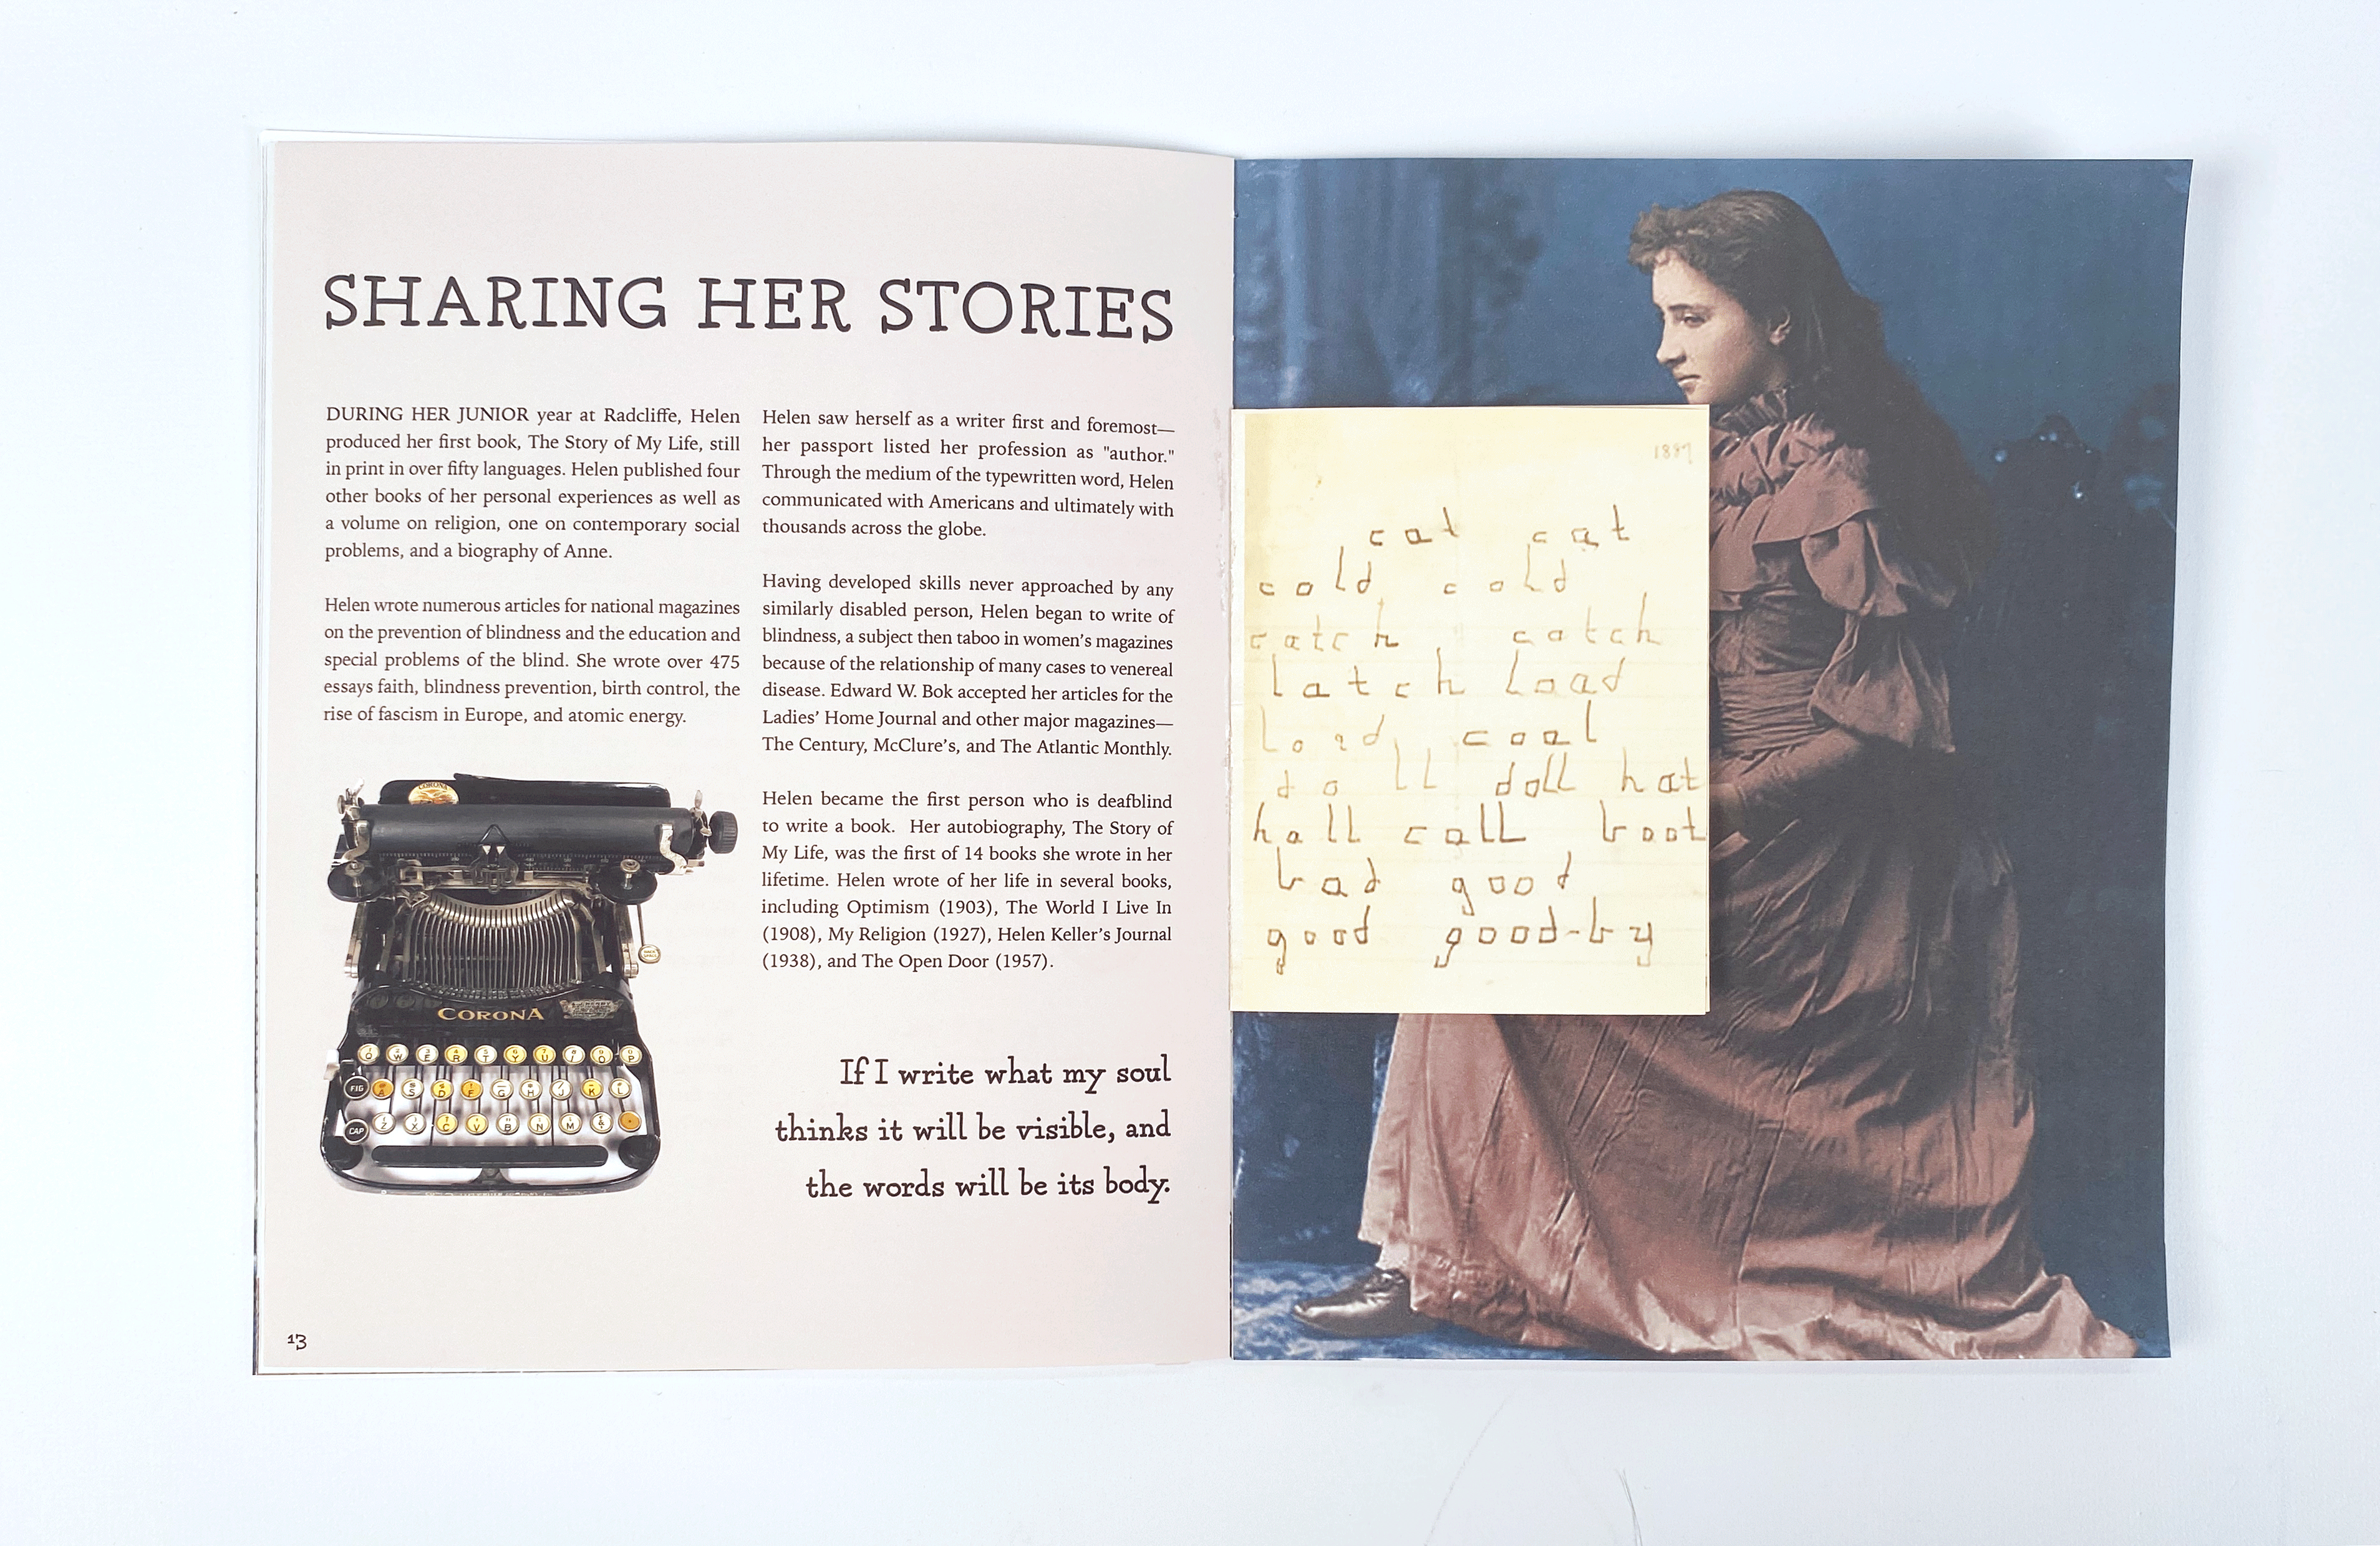 SHARING HER STORIES
DURING HER JUNIOR year at Radcliffe, Helen
produced her first book, The Story of My Life, still
in print in over fifty languages. Helen published four
other books of her personal experiences as well as
a volume on religion, one on contemporary social
problems, and a biography of Anne.
Helen wrote numerous articles for national magazines
on the prevention of blindness and the education and
special problems of the blind. She wrote over 475
essays faith, blindness prevention, birth control, the
rise of fascism in Europe, and atomic energy.
Helen saw herself as a writer first and foremost—
her passport listed her profession as "author."
Through the medium of the typewritten word, Helen
communicated with Americans and ultimately with
thousands across the globe.
Having developed skills never approached by any
similarly disabled person, Helen began to write of
blindness, a subject then taboo in women's magazines
because of the relationship of many cases to venereal
disease. Edward W. Bok accepted her articles for the
Ladies' Home Journal and other major magazines—
The Century, McClure's, and The Atlantic Monthly.
Helen became the first person who is deafblind
to write a book. Her autobiography, The Story of
My Life, was the first of 14 books she wrote in her
lifetime. Helen wrote of her life in several books,
including Optimism (1903), The World I Live In
(1908), My Religion (1927), Helen Keller's Journal
(1938), and The Open Door (1957).
If I write what my soul
thinks it will be visible, and
the words will be its body.
CORONA
CORONA
Q W E R T Y U I O P
FIG A S D F G H J K L
CAP Z X C V B N M &
13
1887
cat cat
cold cold
catch catch
latch load
load coal
doll doll hat
hall call boot
bad good
good good-by